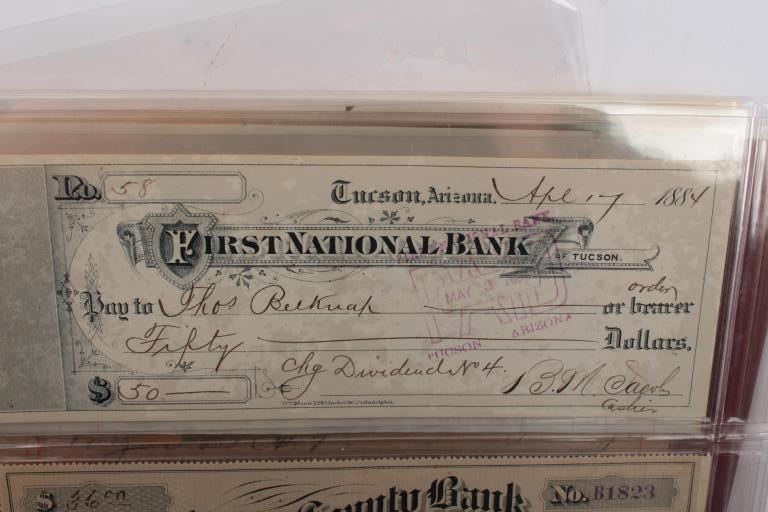 No. 58
Tucson, Arizona. Apl 17 1884
FIRST NATIONAL BANK
OF TUCSON.
NATIONAL BANK
PAID
MAY 3
TUCSON, ARIZONA
order
Pay to Thos Belknap or bearer
Fifty Dollars.
Chg Dividend No 4.
$ 50 B.M. Jacob
Cashier
$
County Bank
No. B1823